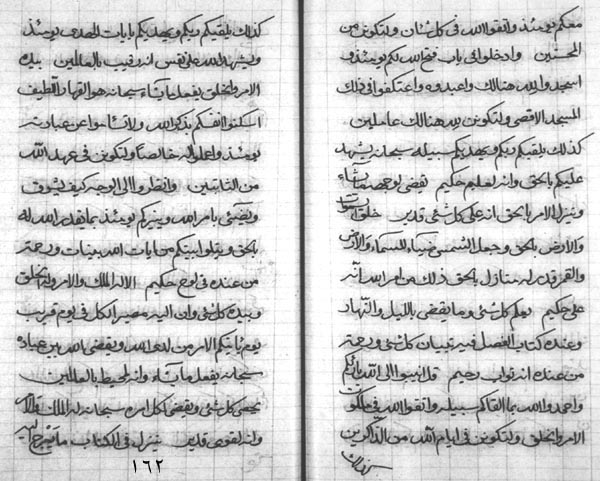 معكم يومئذ واتقوا الله في كل شأن ولتكونن من
المحسنين وادخلوا في باب فتح الله لكم يومئذ و
اسجدوا لله هنالك واعبدوه واعتكفوا في ذلك
المسجد الاقصى ولتكونن لله هنالك عاملين
كذلك يلقيكم ربكم ويهديكم سبيله سبحانه يشهد
عليكم بالحق وانه لعليم حكيم يقضي لوجهه ما يشاء
وينزل الامر بالحق انه على كل شئ قدير خلق السموات
والارض بالحق وجعل الشمس ضياء للسماء والارض
والقمر قدر له منازل بالحق ذلك من امر الله انه
علي حكيم يعلم كل شئ وما يقضي بالليل والنهار
وعنده كتاب الفصل فيه تبيان كل شئ ورحمة
من عنده انه تواب رحيم قل انيبوا الى الله بارئكم
واحمدوا الله بما القاكم سبيله واتقوا الله في ملكوت
الامر والخلق ولتكونن في ايام الله من الذاكرين
كذلك
كذلك يلقيكم ربكم ويهديكم بايات الهدى يومئذ
ويشهد الله على كل نفس انه رقيب بالعالمين بيده
الامر والخلق يفعل ما يشاء سبحانه هو القهار اللطيف
اسكنوا انفسكم بذكر الله ولا تسأموا عن عبادته
يومئذ واعملوا له خالصا ولتكونن في عهد الله
من الثابتين وانظروا الى الوجه كيف
بامر الله يومئذ بما يقدر الله له
بالحق ويتلو اليكم من ايات الله بينات ورحمة
من عنده في لوح حكيم الا له الملك والامر والخلق
وبيده كل شئ وان اليه مصير الكل في يوم قريب
يوم يأتيكم الامر من لدى الله ويقضي الله بين عباده
سبحانه يفعل ما يشاء وانه لمحيط بالعالمين
يحصي كل شئ ويقضي لكل امره سبحانه له الملك
وانه لقوي قدير ينزل في الكتاب ما
١٦٢